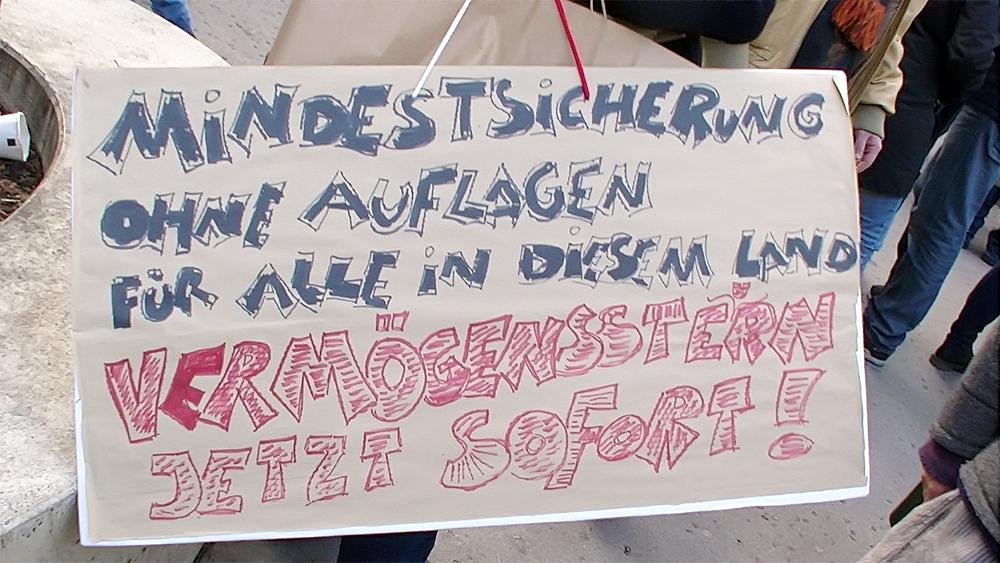 MINDESTSICHERUNG
OHNE AUFLAGEN
FÜR ALLE IN DIESEM LAND
VERMÖGENSSTERN
JETZT SOFORT!